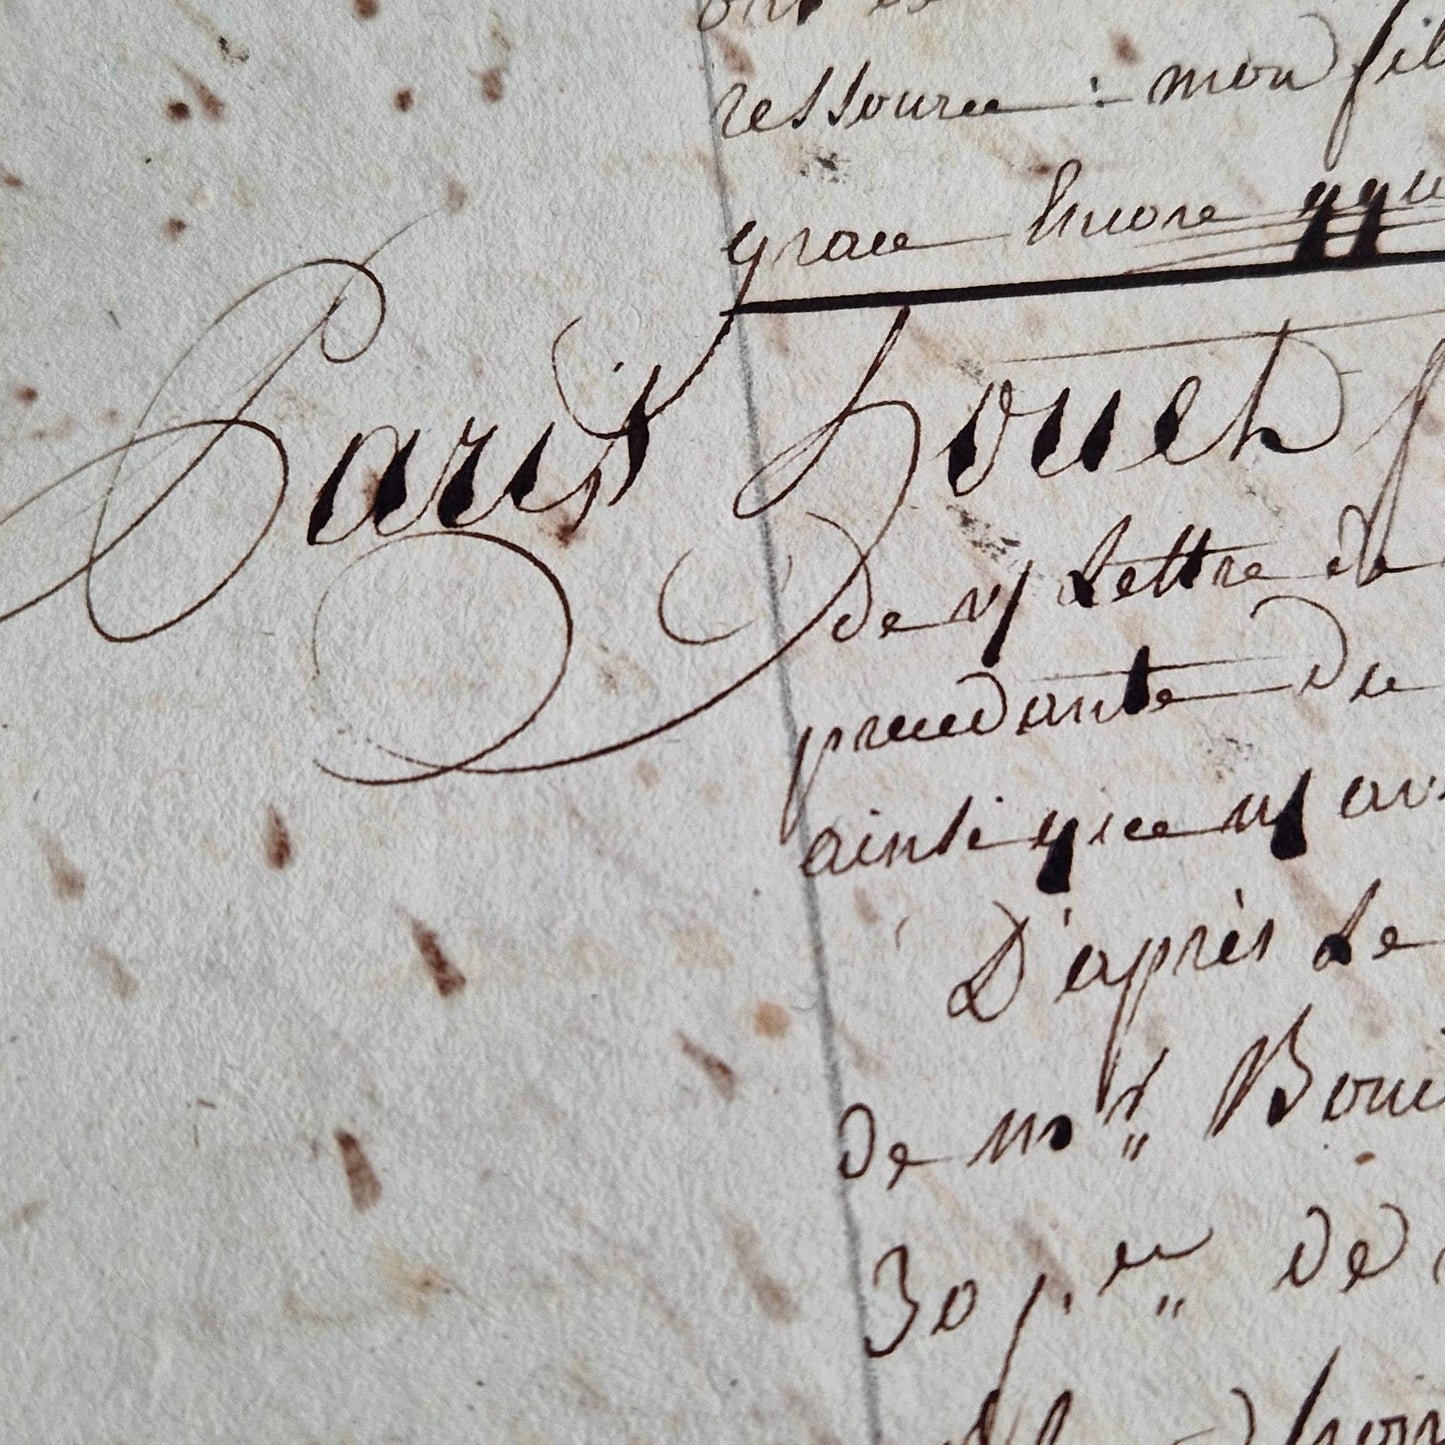 ressource : mon fil
grace Encore
Paris Houel
De vs Lettre de
precedante du
ainsi que vs av
D'après Le
de mr Bou
30 p. de